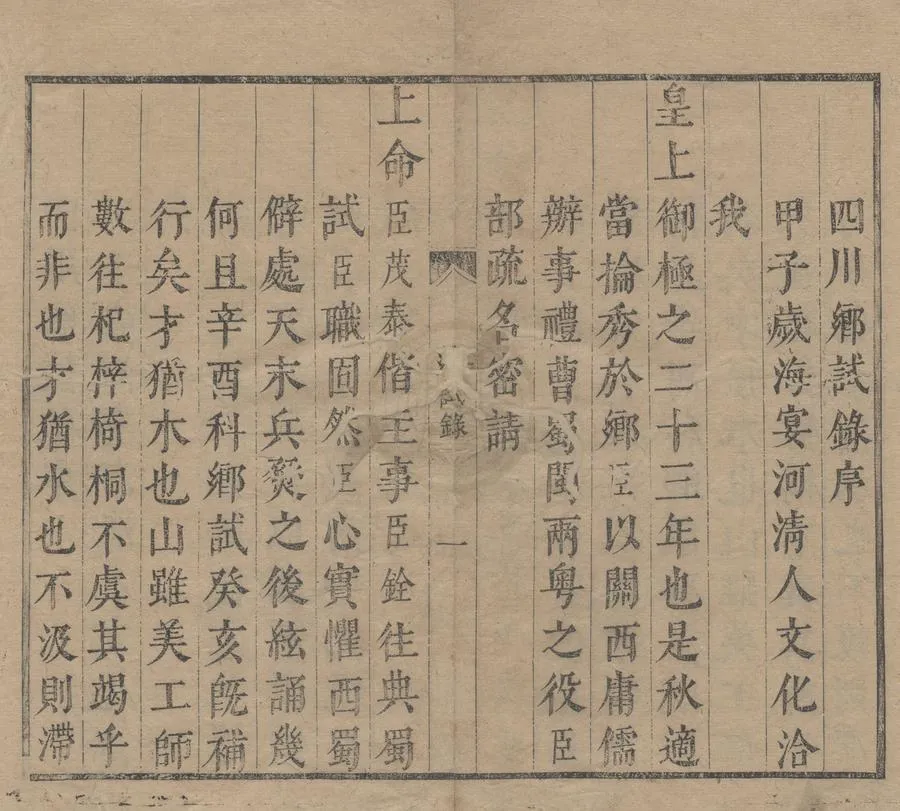 四川鄉試錄序
甲子歲海宴河清人文化洽
我
皇上御極之二十三年也是秋適
當掄秀於鄉臣以關西庸儒
辦事禮曹蜀閩兩粵之役臣
部疏名密請
試錄
一
上命臣茂泰偕王事臣銓往典蜀
試臣職固然臣心實懼西蜀
僻處天末兵燹之後絃誦幾
何且辛酉科鄉試癸亥旣補
行矣才猶木也山雖美工師
數往杞梓椅桐不虞其竭乎
而非也才猶水也不汲則滯